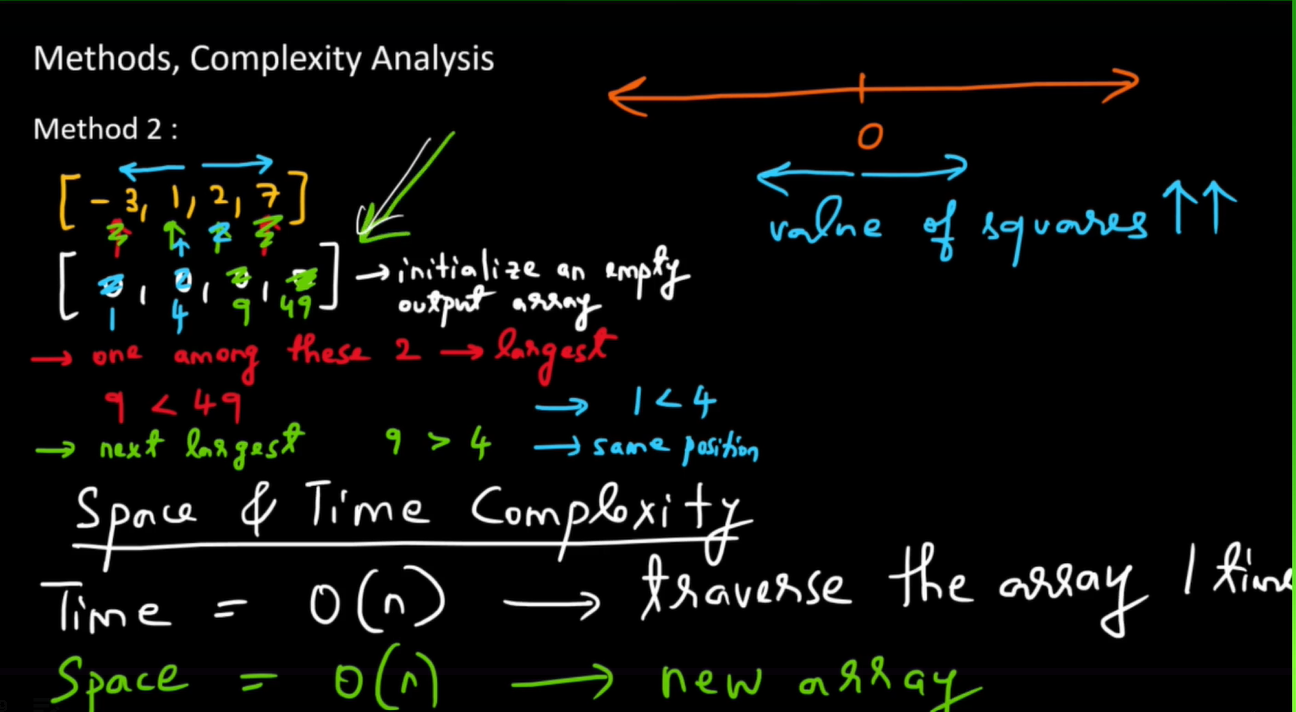 Methods, Complexity Analysis
0
Method 2 :
value of squares ↑↑
[ - 3, 1, 2, 7 ]
[ 0, 0, 0, 0 ] → initialize an empty
output array
1 4 9 49
→ one among these 2 → largest
9 < 49 → 1 < 4
→ next largest 9 > 4 → same position
Space & Time Complexity
Time = O(n) → traverse the array 1 time
Space = O(n) → new array